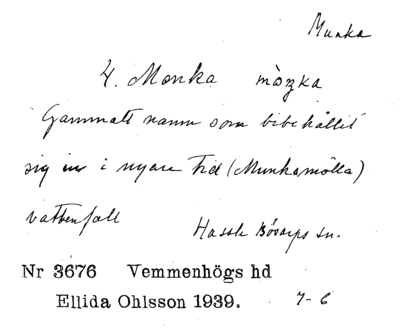 Munka
4. Monka mòŋka
Gammalt namn som bibehållit
sig in i nyare tid (Munkamölla)
vattenfall
Hassle Bösarps sn.
Nr 3676 Vemmenhögs hd
Ellida Ohlsson 1939. 7-6